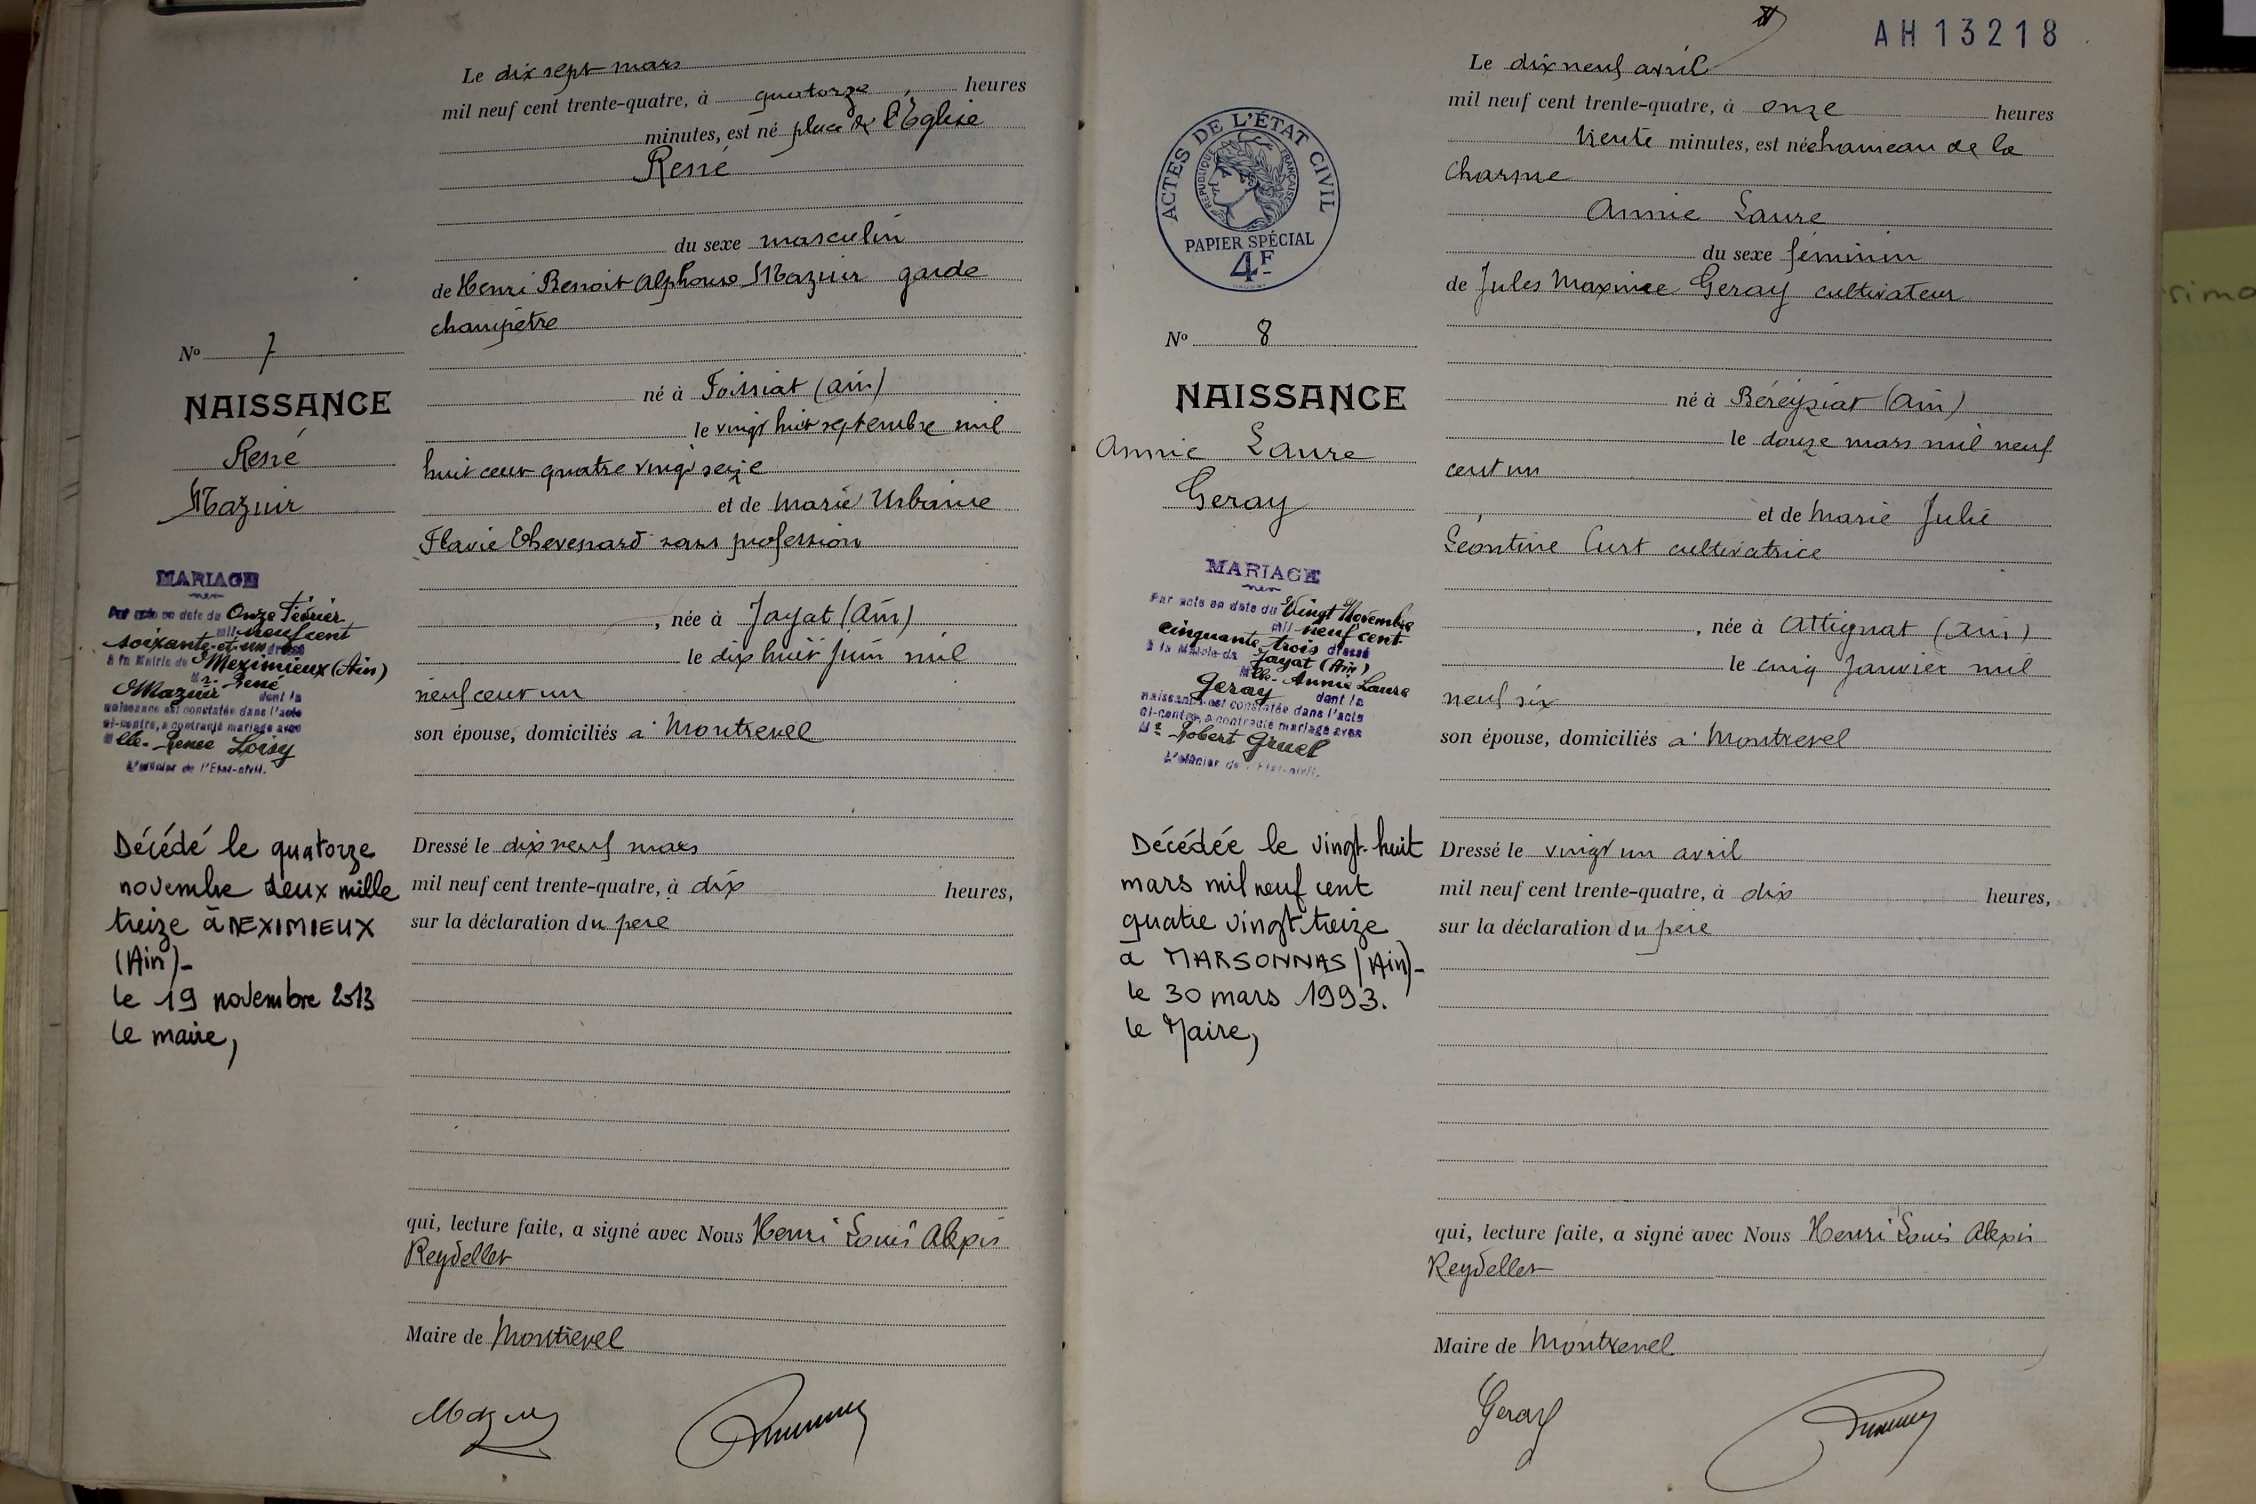 Le dix sept mars
mil neuf cent trente-quatre, à quatorze heures
minutes, est né place de l'Église
René
du sexe masculin
de Henri Benoit Alphonse Mazuir garde
champêtre
né à Foissiat (Ain)
le vingt huit septembre mil
huit cent quatre vingt seize
et de Marie Urbaine
Flavie Thevenard sans profession
, née à Jayat (Ain)
le dix huit juin mil
neuf cent un
son épouse, domiciliés à Montrevel
Dressé le dix neuf mars
mil neuf cent trente-quatre, à dix heures,
sur la déclaration du père
qui, lecture faite, a signé avec Nous Henri Louis Alexis
Reydellet
Maire de Montrevel
Mazuir
No 7
NAISSANCE
René
Mazuir
MARIAGE
Par acte en date du Onze Février
mil neuf cent
soixante-et-un dressé
à la Mairie de Meximieux (Ain)
Mr. René
Mazuir dont la
naissance est constatée dans l'acte
ci-contre, a contracté mariage avec
Mlle. Renée Loisy
L'officier de l'Etat-civil.
Décédé le quatorze
novembre deux mille
treize à MEXIMIEUX
(Ain)-
le 19 novembre 2013
le maire,
AH13218
Le dix neuf avril
mil neuf cent trente-quatre, à onze heures
trente minutes, est née hameau de la
Charme
Annie Laure
du sexe féminin
de Jules Maxime Geray cultivateur
né à Béréyziat (Ain)
le douze mars mil neuf
cent un
et de Marie Julie
Léontine Curt cultivatrice
, née à Attignat (Ain)
le cinq Janvier mil
neuf six
son épouse, domiciliés à Montrevel
Dressé le vingt un avril
mil neuf cent trente-quatre, à dix heures,
sur la déclaration du père
qui, lecture faite, a signé avec Nous Henri Louis Alexis
Reydellet
Maire de Montrevel
Geray
ACTES DE L'ÉTAT CIVIL
RÉPUBLIQUE FRANÇAISE
PAPIER SPÉCIAL
4F
No 8
NAISSANCE
Annie Laure
Geray
MARIAGE
Par acte en date du Vingt Novembre
mil neuf cent
cinquante trois dressé
à la Mairie de Jayat (Ain)
Mlle. Annie Laure
Geray dont la
naissance est constatée dans l'acte
ci-contre, a contracté mariage avec
Mr Robert Gruel
L'officier de l'Etat-civil.
Décédée le vingt-huit
mars mil neuf cent
quatre vingt treize
à MARSONNAS (Ain)-
le 30 mars 1993.
le Maire,